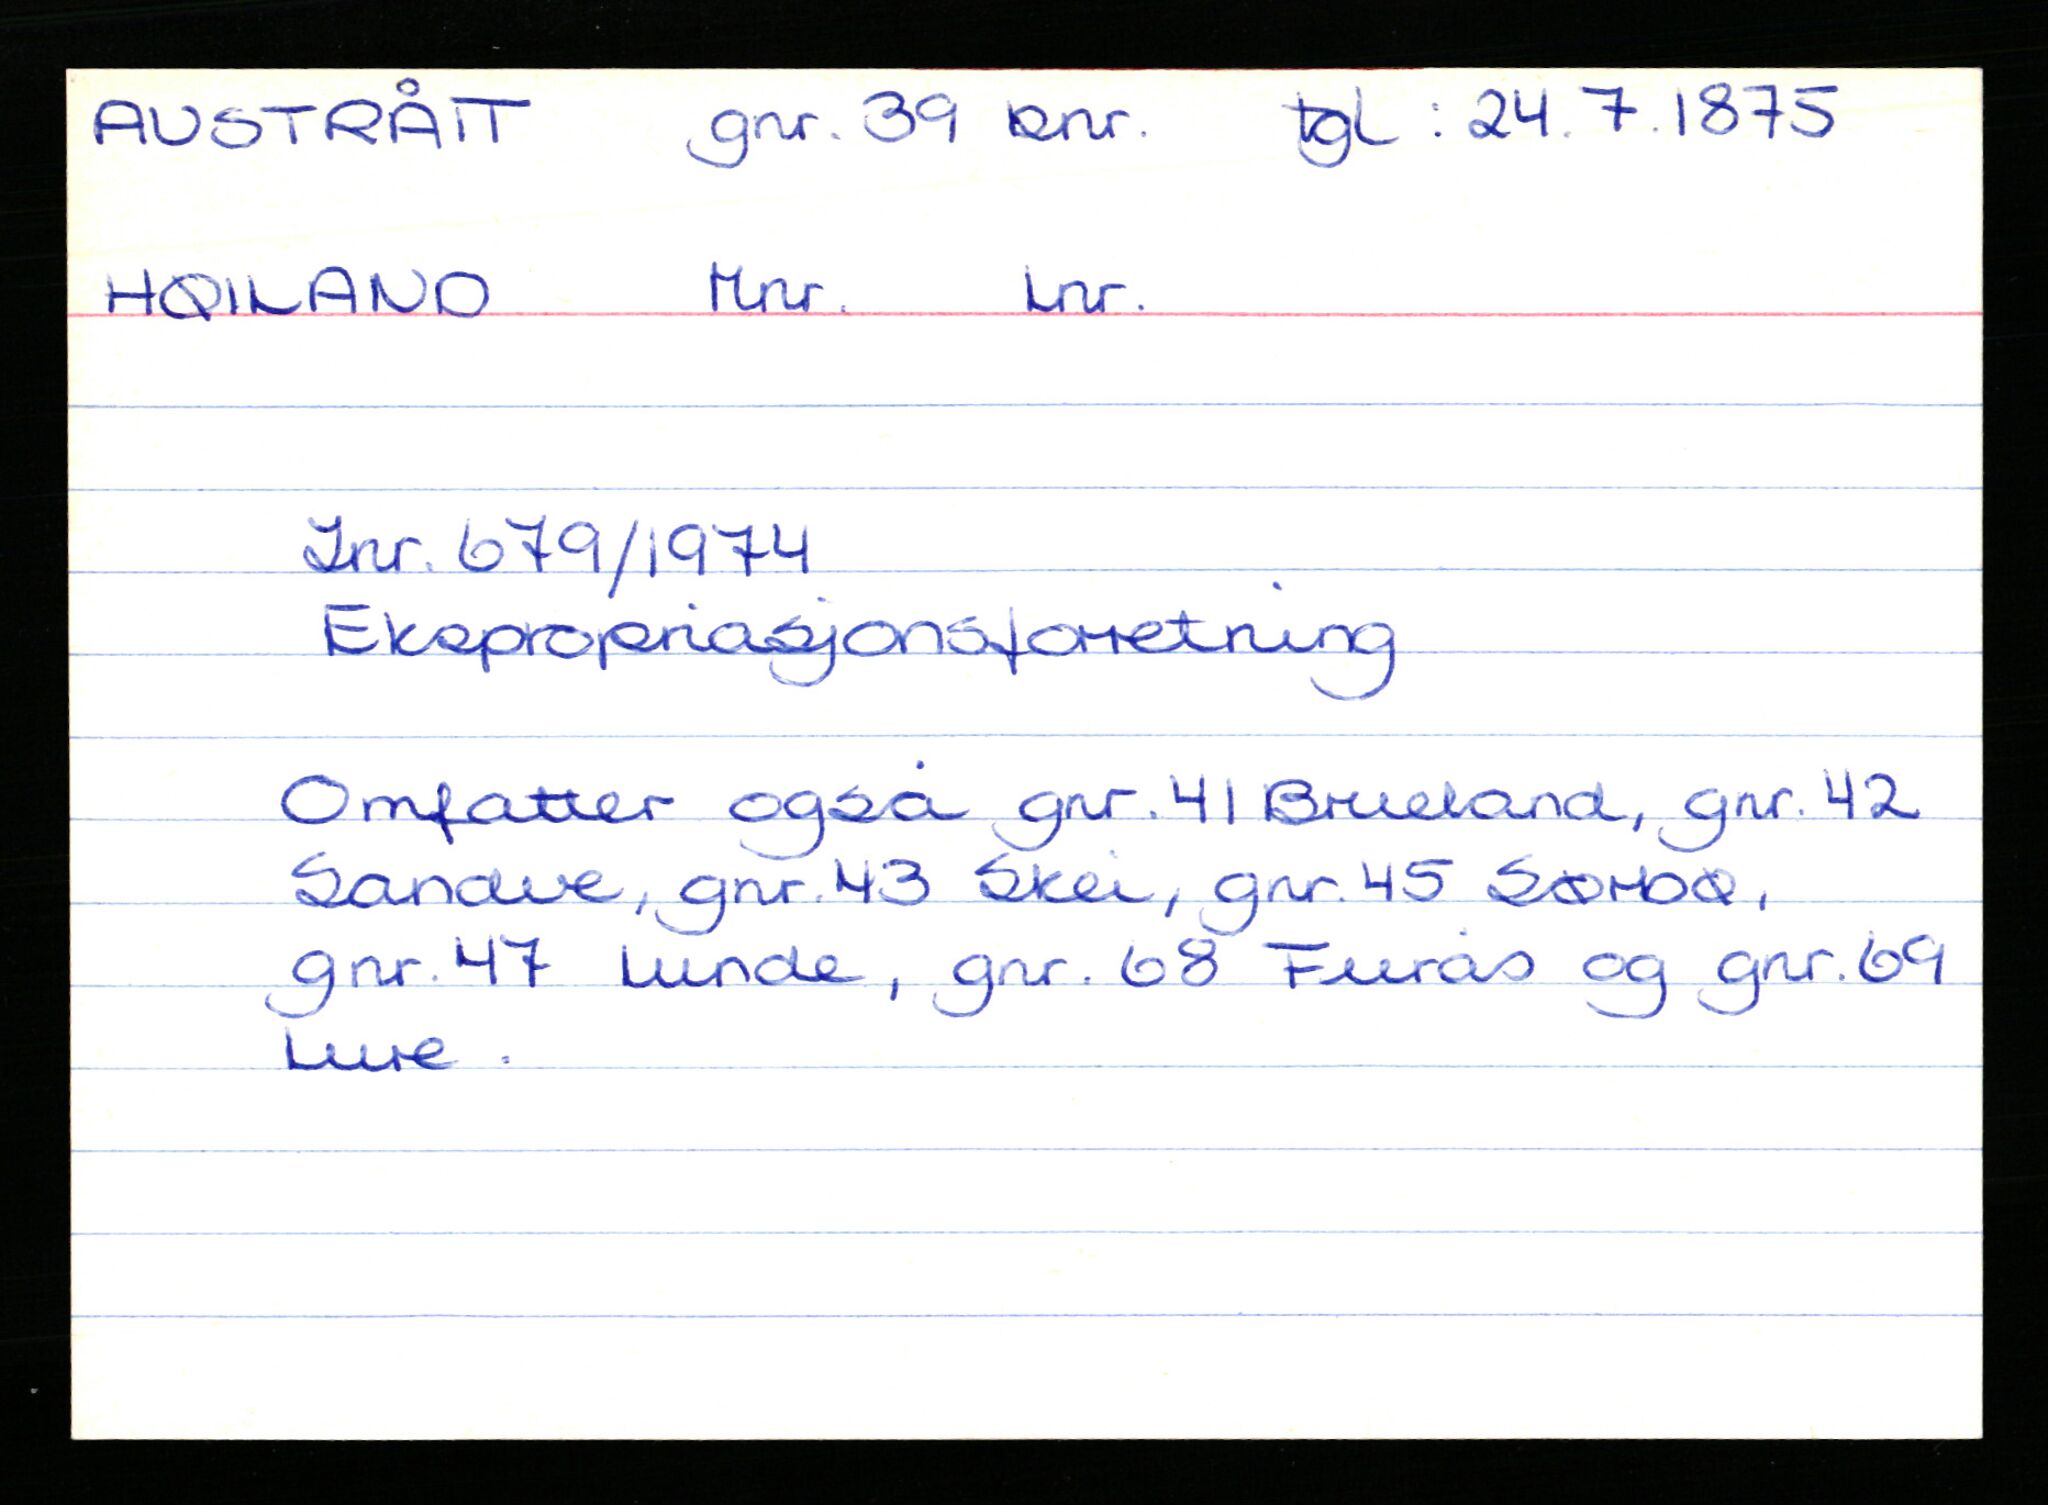 AUSTRÅTT gnr. 39 bnr. tgl : 24.7.1875
HØILAND Mnr. Lnr.
Jnr. 679/1974
Ekspropriasjonsforretning
Omfatter også gnr. 41 Brueland, gnr. 42
Sandve, gnr. 43 Skei, gnr. 45 Sørbø,
gnr. 47 Lunde, gnr. 68 Furås og gnr. 69
Lure .